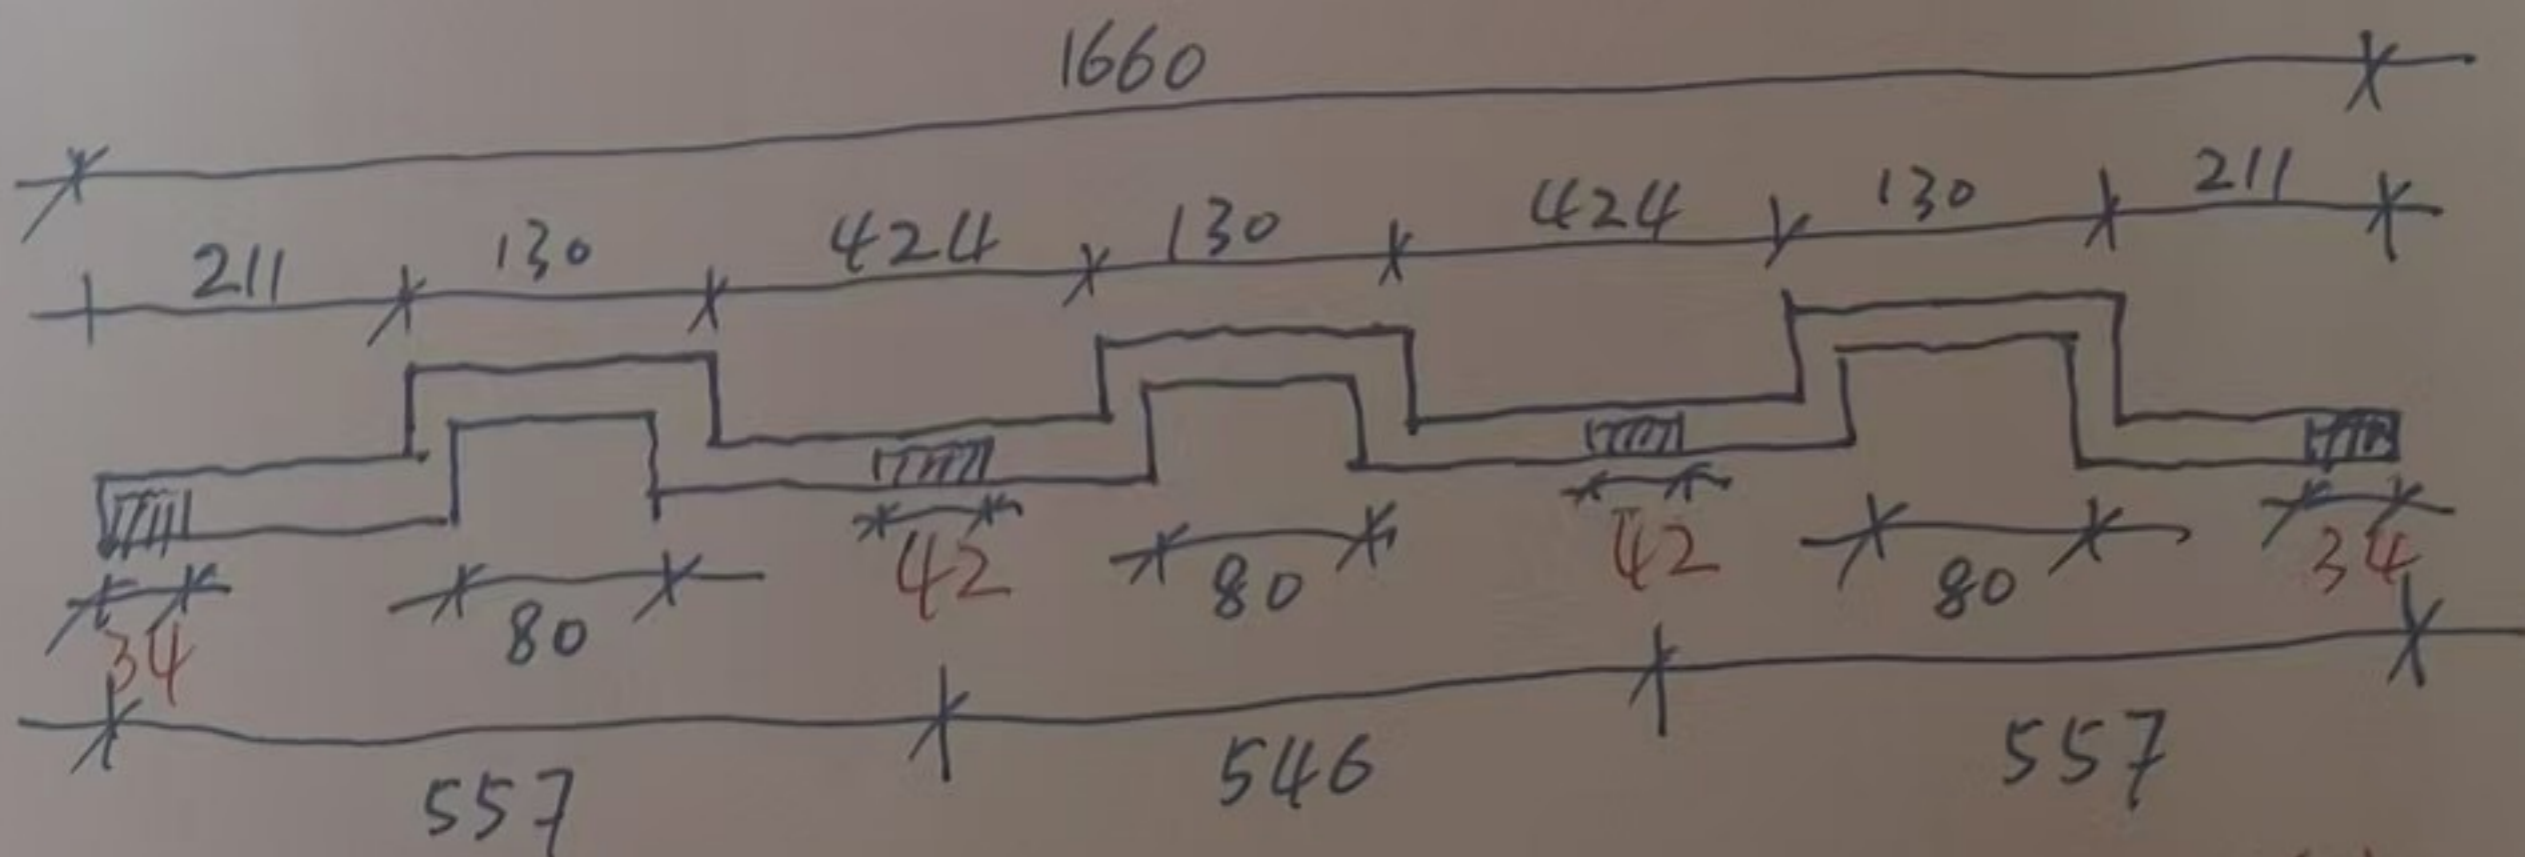 1660
211 130 424 130 424 130 211
34 80 42 80 42 80 34
557 546 557